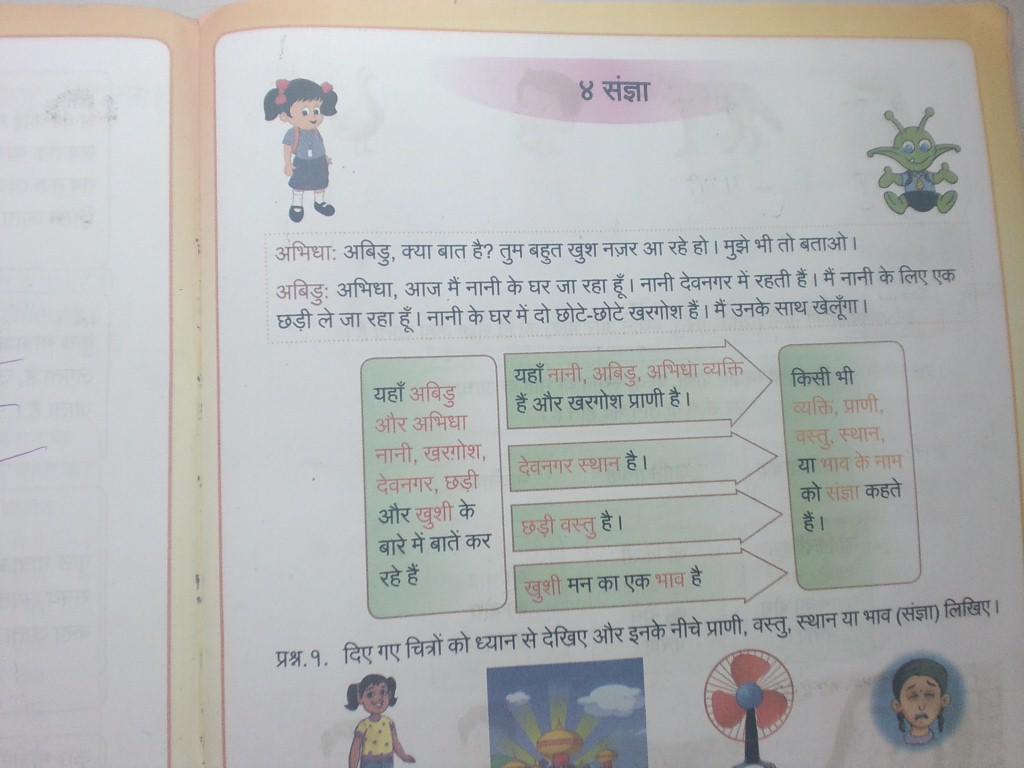 ४ संज्ञा
अभिधा: अबिडु, क्या बात है? तुम बहुत खुश नज़र आ रहे हो। मुझे भी तो बताओ।
अबिडु: अभिधा, आज मैं नानी के घर जा रहा हूँ। नानी देवनगर में रहती हैं। मैं नानी के लिए एक
छड़ी ले जा रहा हूँ। नानी के घर में दो छोटे-छोटे खरगोश हैं। मैं उनके साथ खेलूँगा।
यहाँ अबिडु
और अभिधा
नानी, खरगोश,
देवनगर, छड़ी
और खुशी के
बारे में बातें कर
रहे हैं
यहाँ नानी, अबिडु, अभिधा व्यक्ति
हैं और खरगोश प्राणी है।
देवनगर स्थान है।
छड़ी वस्तु है।
खुशी मन का एक भाव है
किसी भी
व्यक्ति, प्राणी,
वस्तु, स्थान,
या भाव के नाम
को संज्ञा कहते
हैं।
प्रश्न.१. दिए गए चित्रों को ध्यान से देखिए और इनके नीचे प्राणी, वस्तु, स्थान या भाव (संज्ञा) लिखिए।